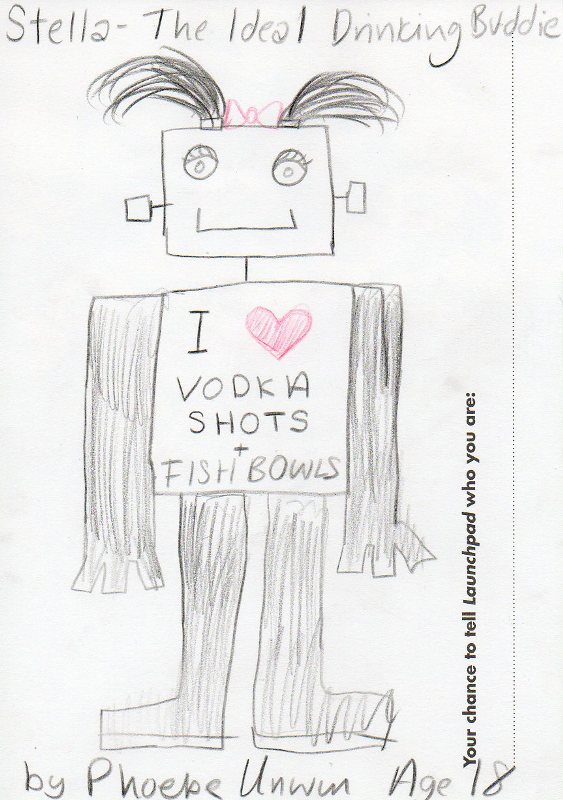 Stella - The Ideal Drinking Buddie
I ♥
VODKA
SHOTS
+
FISH BOWLS
Your chance to tell Launchpad who you are:
by Phoebe Unwin Age 18